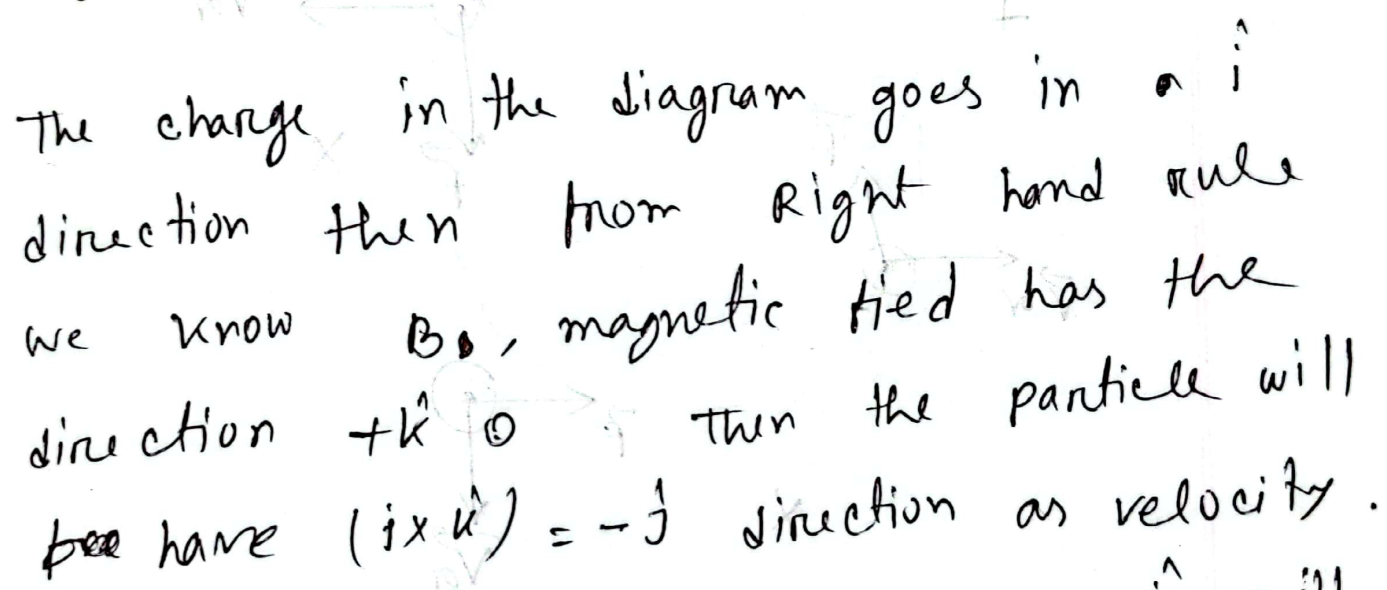 The charge in the diagram goes in a î
direction then from Right hand rule
we know B, magnetic field has the
direction +k̂ ⊙ Then the particle will
have (î×k̂) = -ĵ direction as velocity.